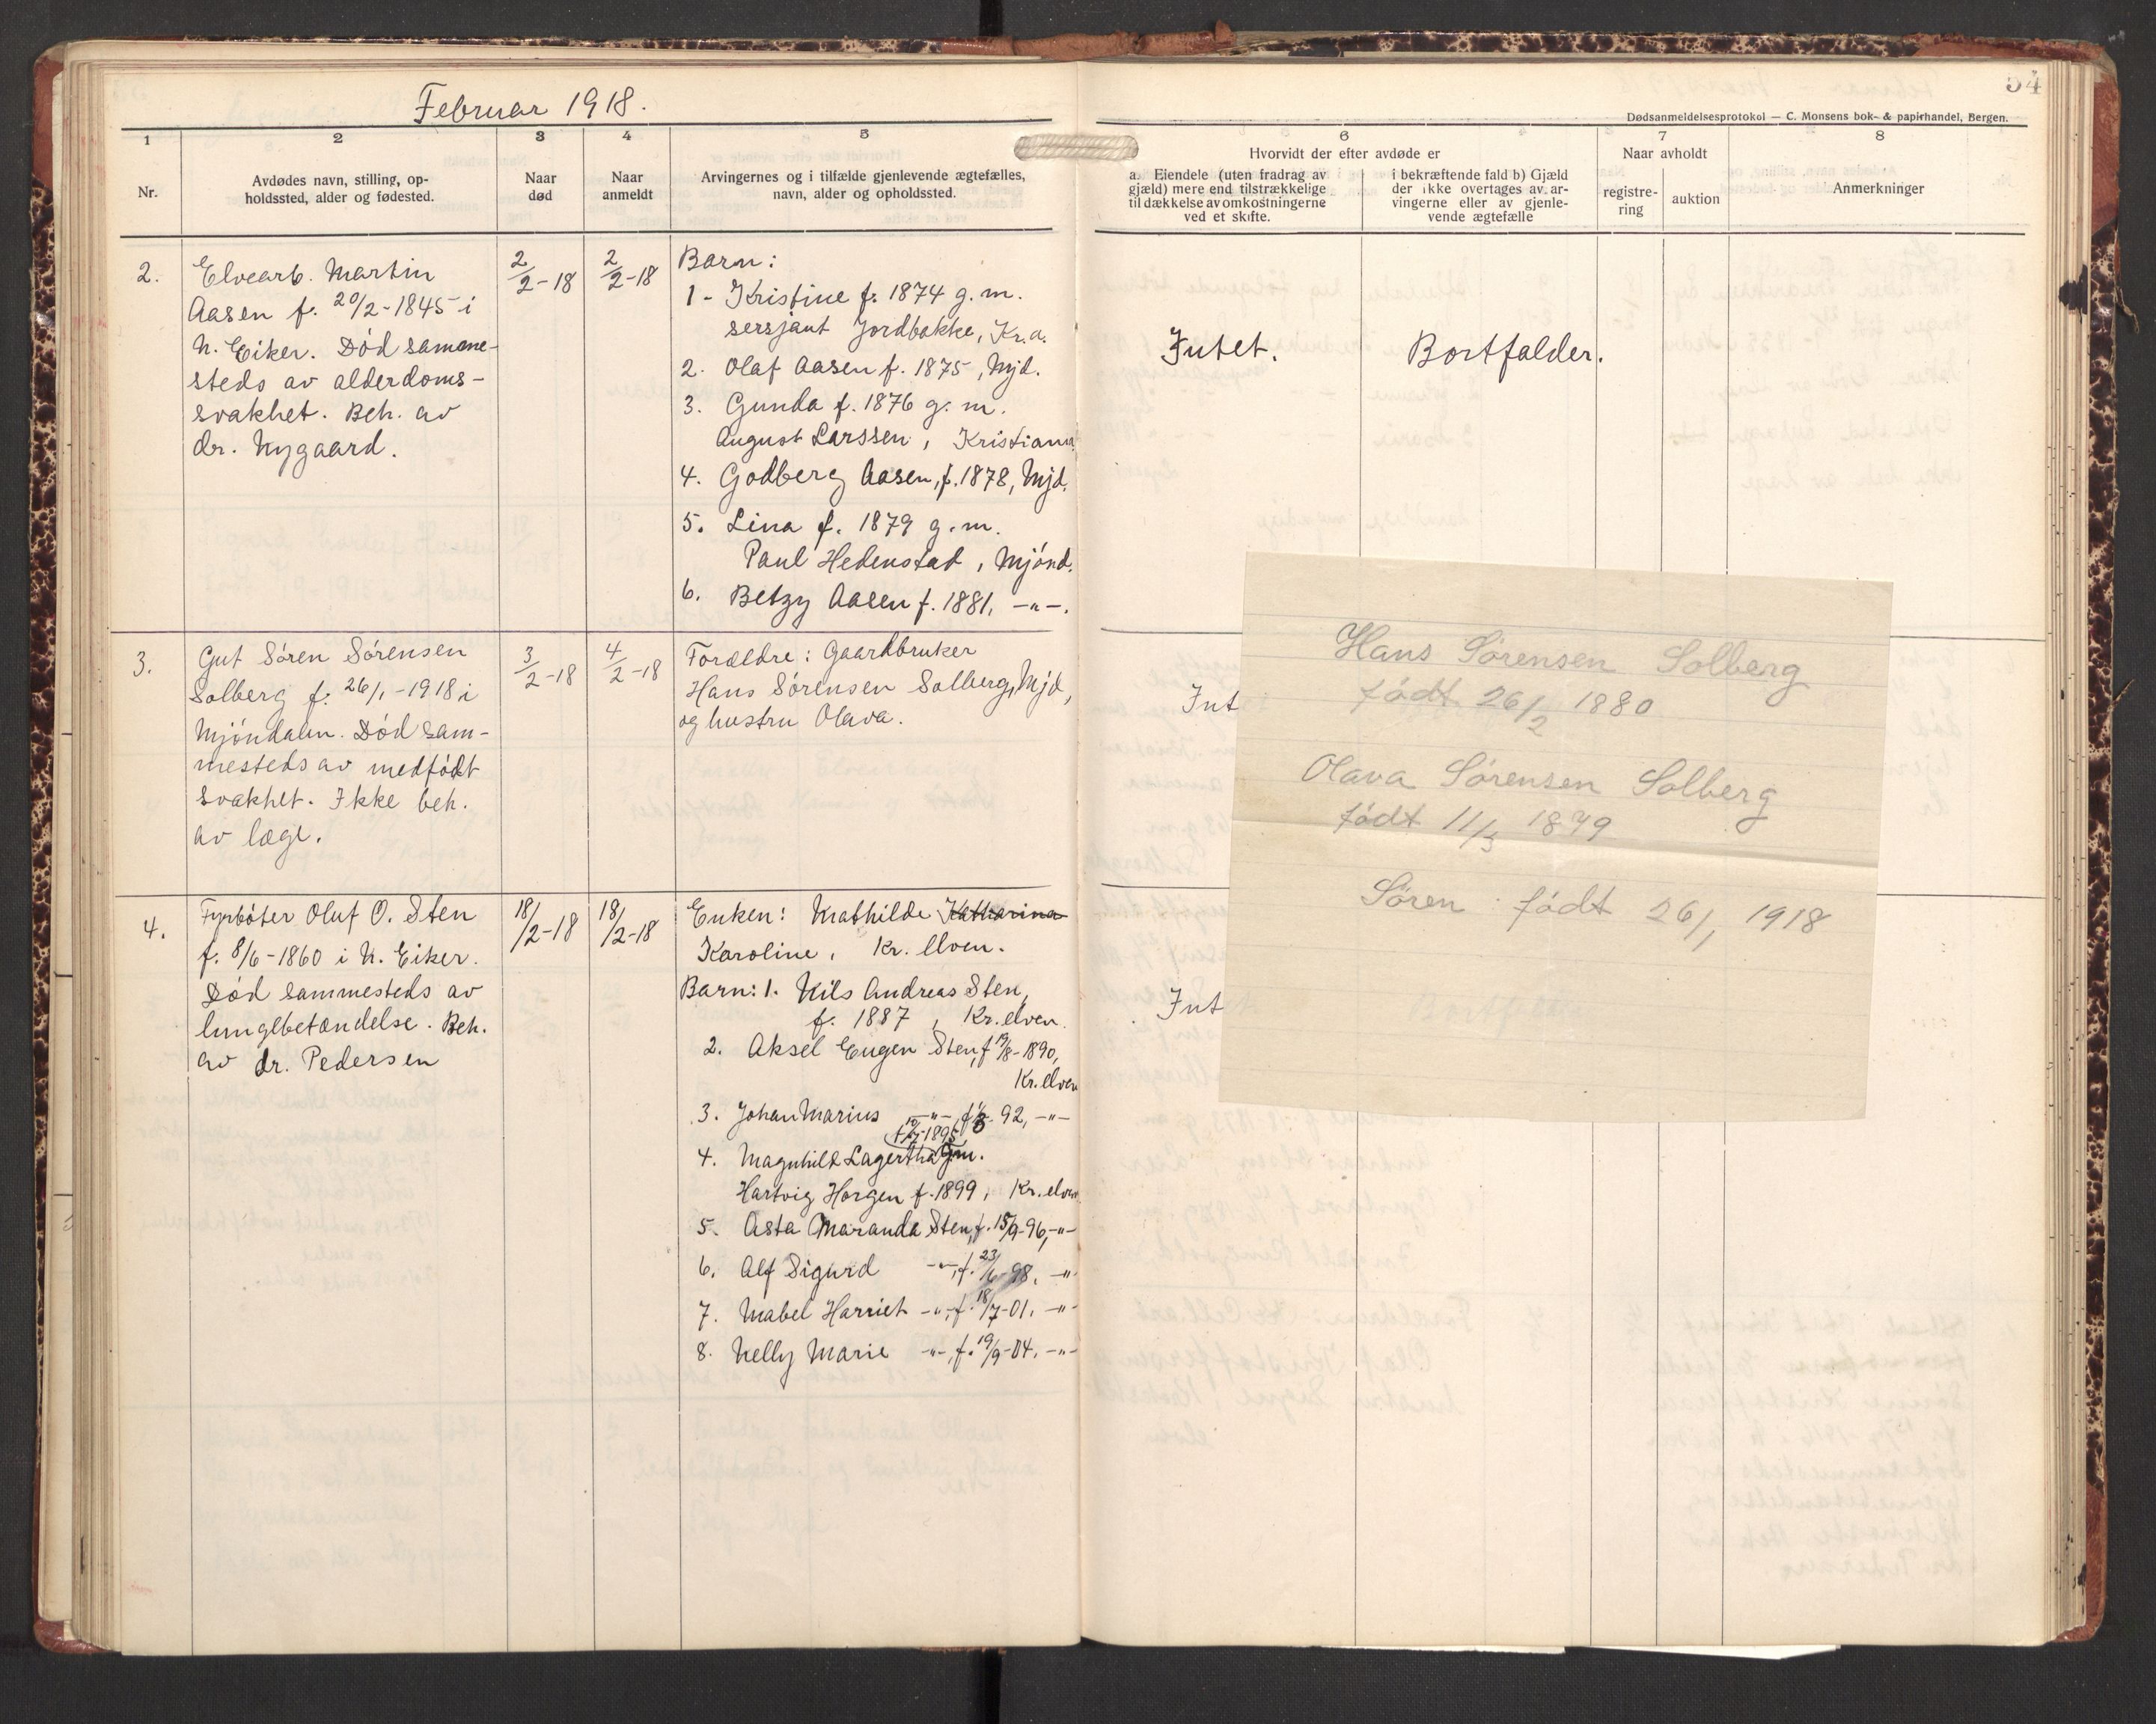 Februar 1918.
54
Dødsanmeldelsesprotokol — C. Monsens bok- & papirhandel, Bergen.
1
Nr.
2
Avdødes navn, stilling, op-
holdssted, alder og fødested.
3
Naar
død
4
Naar
anmeldt
5
Arvingernes og i tilfælde gjenlevende ægtefælles,
navn, alder og opholdssted.
6
Hvorvidt der efter avdøde er
a. Eiendele (uten fradrag av
gjæld) mere end tilstrækkelige
til dækkelse av omkostningerne
ved et skifte.
i bekræftende fald b) Gjæld
der ikke overtages av ar-
vingerne eller av gjenle-
vende ægtefælle
7
Naar avholdt
registre-
ring
auktion
8
Anmerkninger
2.
Elvearb. Martin
Aasen f. 20/2-1845 i
N. Eiker. Død samme-
steds av alderdoms-
svakhet. Beh. av
dr. Nygaard.
2/2-18
2/2-18
Barn:
1- Kristine f. 1874 g. m.
sersjant Jordbakke, Kr.a.
2. Olaf Aasen f. 1875, Mjd.
3. Gunda f. 1876 g. m.
August Larssen, Kristiania
4. Godberg Aasen, f. 1878, Mjd.
5. Lina f. 1879 g. m.
Paul Hedenstad, Mjønd.
6. Betzy Aasen f. 1881, -"-.
Intet.
Bortfalder.
3.
Gut Søren Sørensen
Solberg f. 26/1-1918 i
Mjøndalen. Død sam-
mesteds av medfødt
svakhet. Ikke beh.
av læge.
3/2-18
4/2-18
Forældre: Gaardbruker
Hans Sørensen Solberg, Mjd,
og hustru Olava.
Int
4.
Fyrbøter Oluf O. Sten
f. 8/6-1860 i N. Eiker.
Død sammesteds av
lungebetændelse. Beh.
av dr. Pedersen
18/2-18
18/2-18
Enken: Mathilde Katharina
Karoline, Kr. elven.
Barn: 1. Nils Andreas Sten,
f. 1887, Kr. elven.
2. Aksel Eugen Sten, f 19/8-1890,
Kr. elven
3. Johan Marius -"-, f. 92, -"-
4. Magnhild Lagertha g.m.
Hartvig Horgen f. 1899, Kr. elven
5. Asta Maranda Sten, f. 15/9-96, -"-
6. Alf Sigurd -"-, f. 23/6-98, -"-
7. Mabel Harriet -"-, f. 18/7-01, -"-
8. Nelly Marie -"-, f. 19/9-04, -"-
Int
Hans Sørensen Solberg
født 26/2 1880
Olava Sørensen Solberg
født 11/3 1879
Søren født 26/1 1918